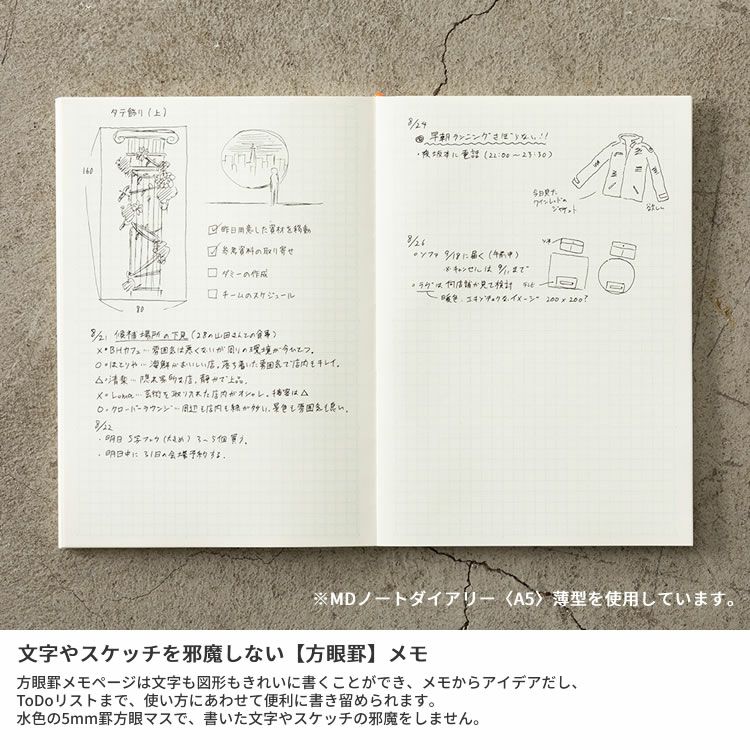 タテ飾り(上)
160
80
☑昨日用意した資材を移動
☑参考資料の取り寄せ
☐ダミーの作成
☐チームのスケジュール
8/21 候補場所の下見(28の山田さんとの食事)
×・BHカフェ…雰囲気は悪くないが周りの環境が今いち。
○・はとりや…海鮮がおいしい店。落ち着いた雰囲気で店内もキレイ。
△・清楽…隠れ家的な店。静かで上品。
×・Lohua…芸術を取り入れた店内がオシャレ。接客は△
○・クローバーラウンジ…周辺も店内も緑が多い。景色も雰囲気も良い。
8/22
・明日 S字フック(大きめ) 3〜5個買う。
・明日中に31日の会場予約する。
8/24
早朝ランニングさぼらない!!
・坂本に電話(21:00〜23:30)
今日見た
ワインレッドの
ジャケット
欲しい
8/26
○ソファ 9/18に届く(午前中)
※キャンセルは9/1まで
○ラグは何店舗か見て検討
暖色、エキゾチックなイメージ 200×200?
ソファ
テレビ
※MDノートダイアリー〈A5〉薄型を使用しています。
文字やスケッチを邪魔しない【方眼罫】メモ
方眼罫メモページは文字も図形もきれいに書くことができ、メモからアイデアだし、
ToDoリストまで、使い方にあわせて便利に書き留められます。
水色の5mm罫方眼マスで、書いた文字やスケッチの邪魔をしません。